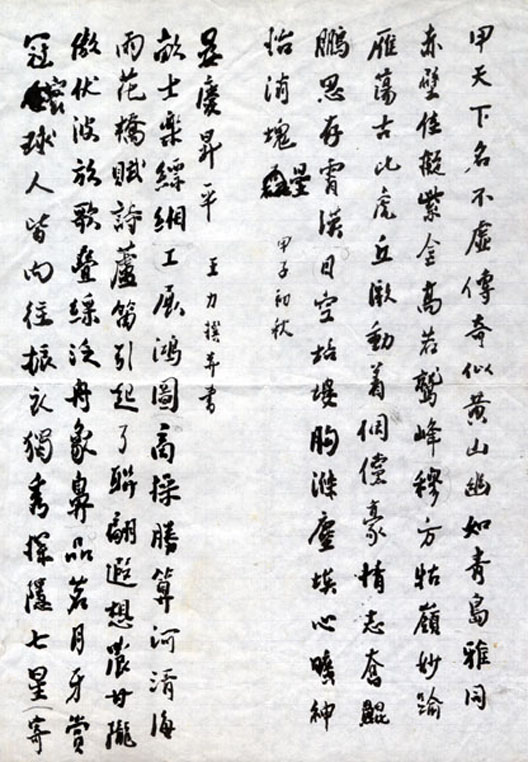 甲天下名不虛傳奇似黃山幽如青島雅同
赤壁佳擬紫金高若鷲峰穆方牯嶺妙逾
雁蕩古比虎丘激動着倜儻豪情志奮鯤
鵬思存霄漢目空培塿胸滌塵埃心曠神
怡消塊壘
甲子初秋
冠寰球人皆向往振衣獨秀探隱七星寄
傲伏波放歌疊綵泛舟象鼻品茗月牙賞
雨花橋賦詩蘆笛引起了聯翩遐想農甘隴
畝士樂縹緗工展鴻圖商操勝算河清海
晏慶昇平
王力撰并書